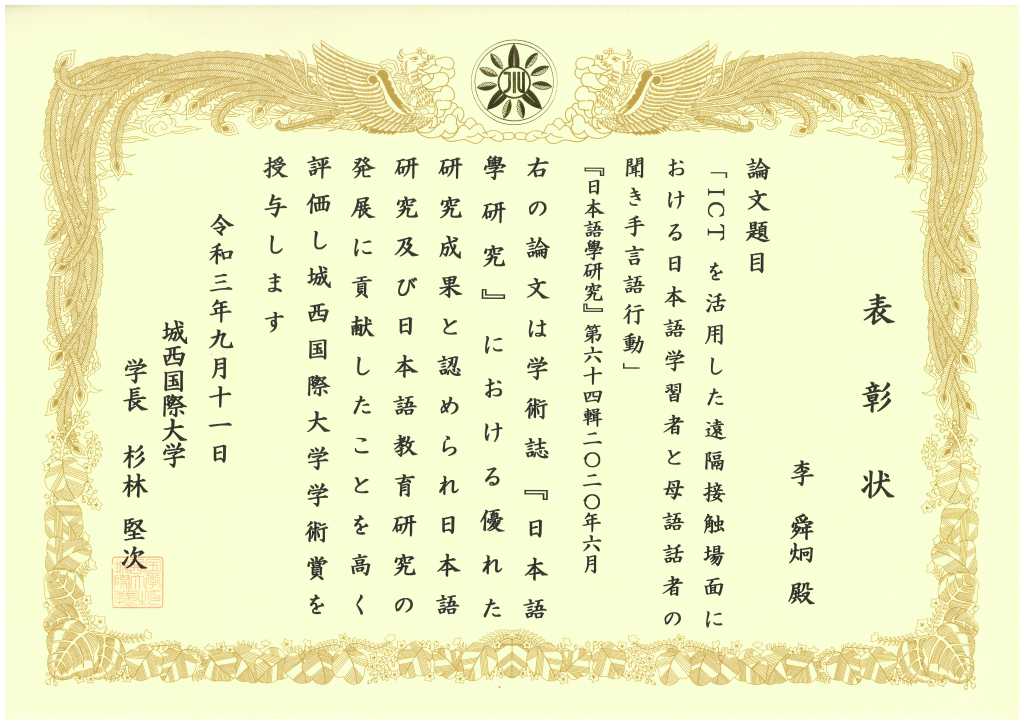 表彰状
李 舜炯 殿
論文題目
「ICTを活用した遠隔接触場面に
おける日本語学習者と母語話者の
聞き手言語行動」
『日本語學研究』第六十四輯二〇二〇年六月
右の論文は学術誌『日本語
學研究』における優れた
研究成果と認められ日本語
研究及び日本語教育研究の
発展に貢献したことを高く
評価し城西国際大学学術賞を
授与します
令和三年九月十一日
城西国際大学
学長 杉林 堅次